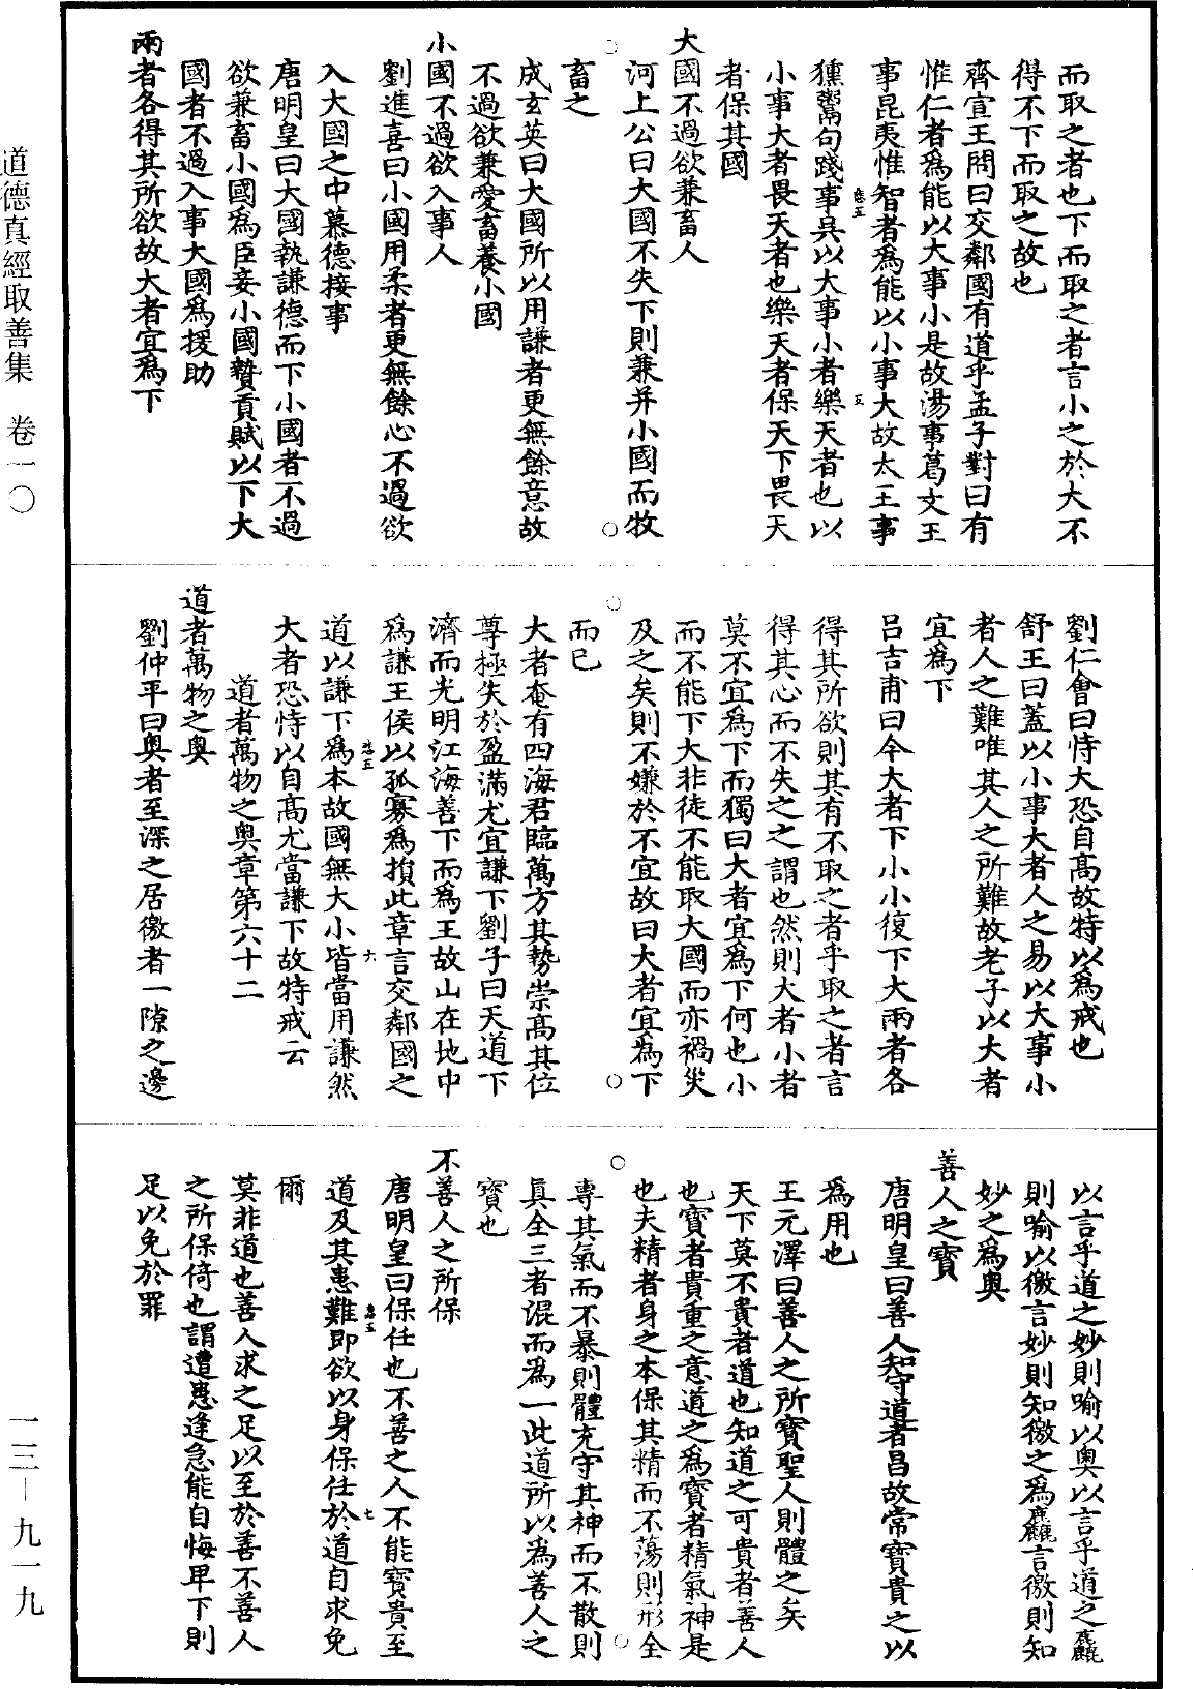 而取之者也下而取之者言小之於大不
得不下而取之故也
齊宣王問曰交鄰國有道乎孟子對曰有
惟仁者爲能以大事小是故湯事葛文王
事昆夷惟智者爲能以小事大故太王事
獯鬻句踐事吳以大事小者樂天者也以
小事大者畏天者也樂天者保天下畏天
者保其國
大國不過欲兼畜人
河上公曰大國不失下則兼并小國而牧
畜之
成玄英曰大國所以用謙者更無餘意故
不過欲兼愛畜養小國
小國不過欲入事人
劉進喜曰小國用柔者更無餘心不過欲
入大國之中慕德接事
唐明皇曰大國執謙德而下小國者不過
欲兼畜小國爲臣妾小國贄貢賦以下大
國者不過入事大國爲援助
兩者各得其所欲故大者宜爲下
劉仁會曰恃大恐自高故特以爲戒也
舒王曰蓋以小事大者人之易以大事小
者人之難唯其人之所難故老子以大者
宜爲下
呂吉甫曰今大者下小小復下大兩者各
得其所欲則其有不取之者乎取之者言
得其心而不失之之謂也然則大者小者
莫不宜爲下而獨曰大者宜爲下何也小
而不能下大非徒不能取大國而亦禍災
及之矣則不嫌於不宜故曰大者宜爲下
而已
大者奄有四海君臨萬方其勢崇高其位
尊極失於盈滿尤宜謙下劉子曰天道下
濟而光明江海善下而爲王故山在地中
爲謙王侯以孤寡爲損此章言交鄰國之
道以謙下爲本故國無大小皆當用謙然
大者恐恃以自高尤當謙下故特戒云
道者萬物之奧章第六十二
道者萬物之奧
劉仲平曰奧者至深之居徼者一隙之邊
以言乎道之妙則喻以奧以言乎道之麤
則喻以徼言妙則知徼之爲麤言徼則知
妙之爲奧
善人之寶
唐明皇曰善人知守道者昌故常寶貴之以
爲用也
王元澤曰善人之所寶聖人則體之矣
天下莫不貴者道也知道之可貴者善人
也寶者貴重之意道之爲寶者精氣神是
也夫精者身之本保其精而不蕩則形全
專其氣而不暴則體充守其神而不散則
真全三者混而爲一此道所以爲善人之
寶也
不善人之所保
唐明皇曰保任也不善之人不能寶貴至
道及其患難即欲以身保任於道自求免
爾
莫非道也善人求之足以至於善不善人
之所保倚也謂遭患逢急能自悔卑下則
足以免於罪
道德真經取善集 卷一〇
一三—九一九